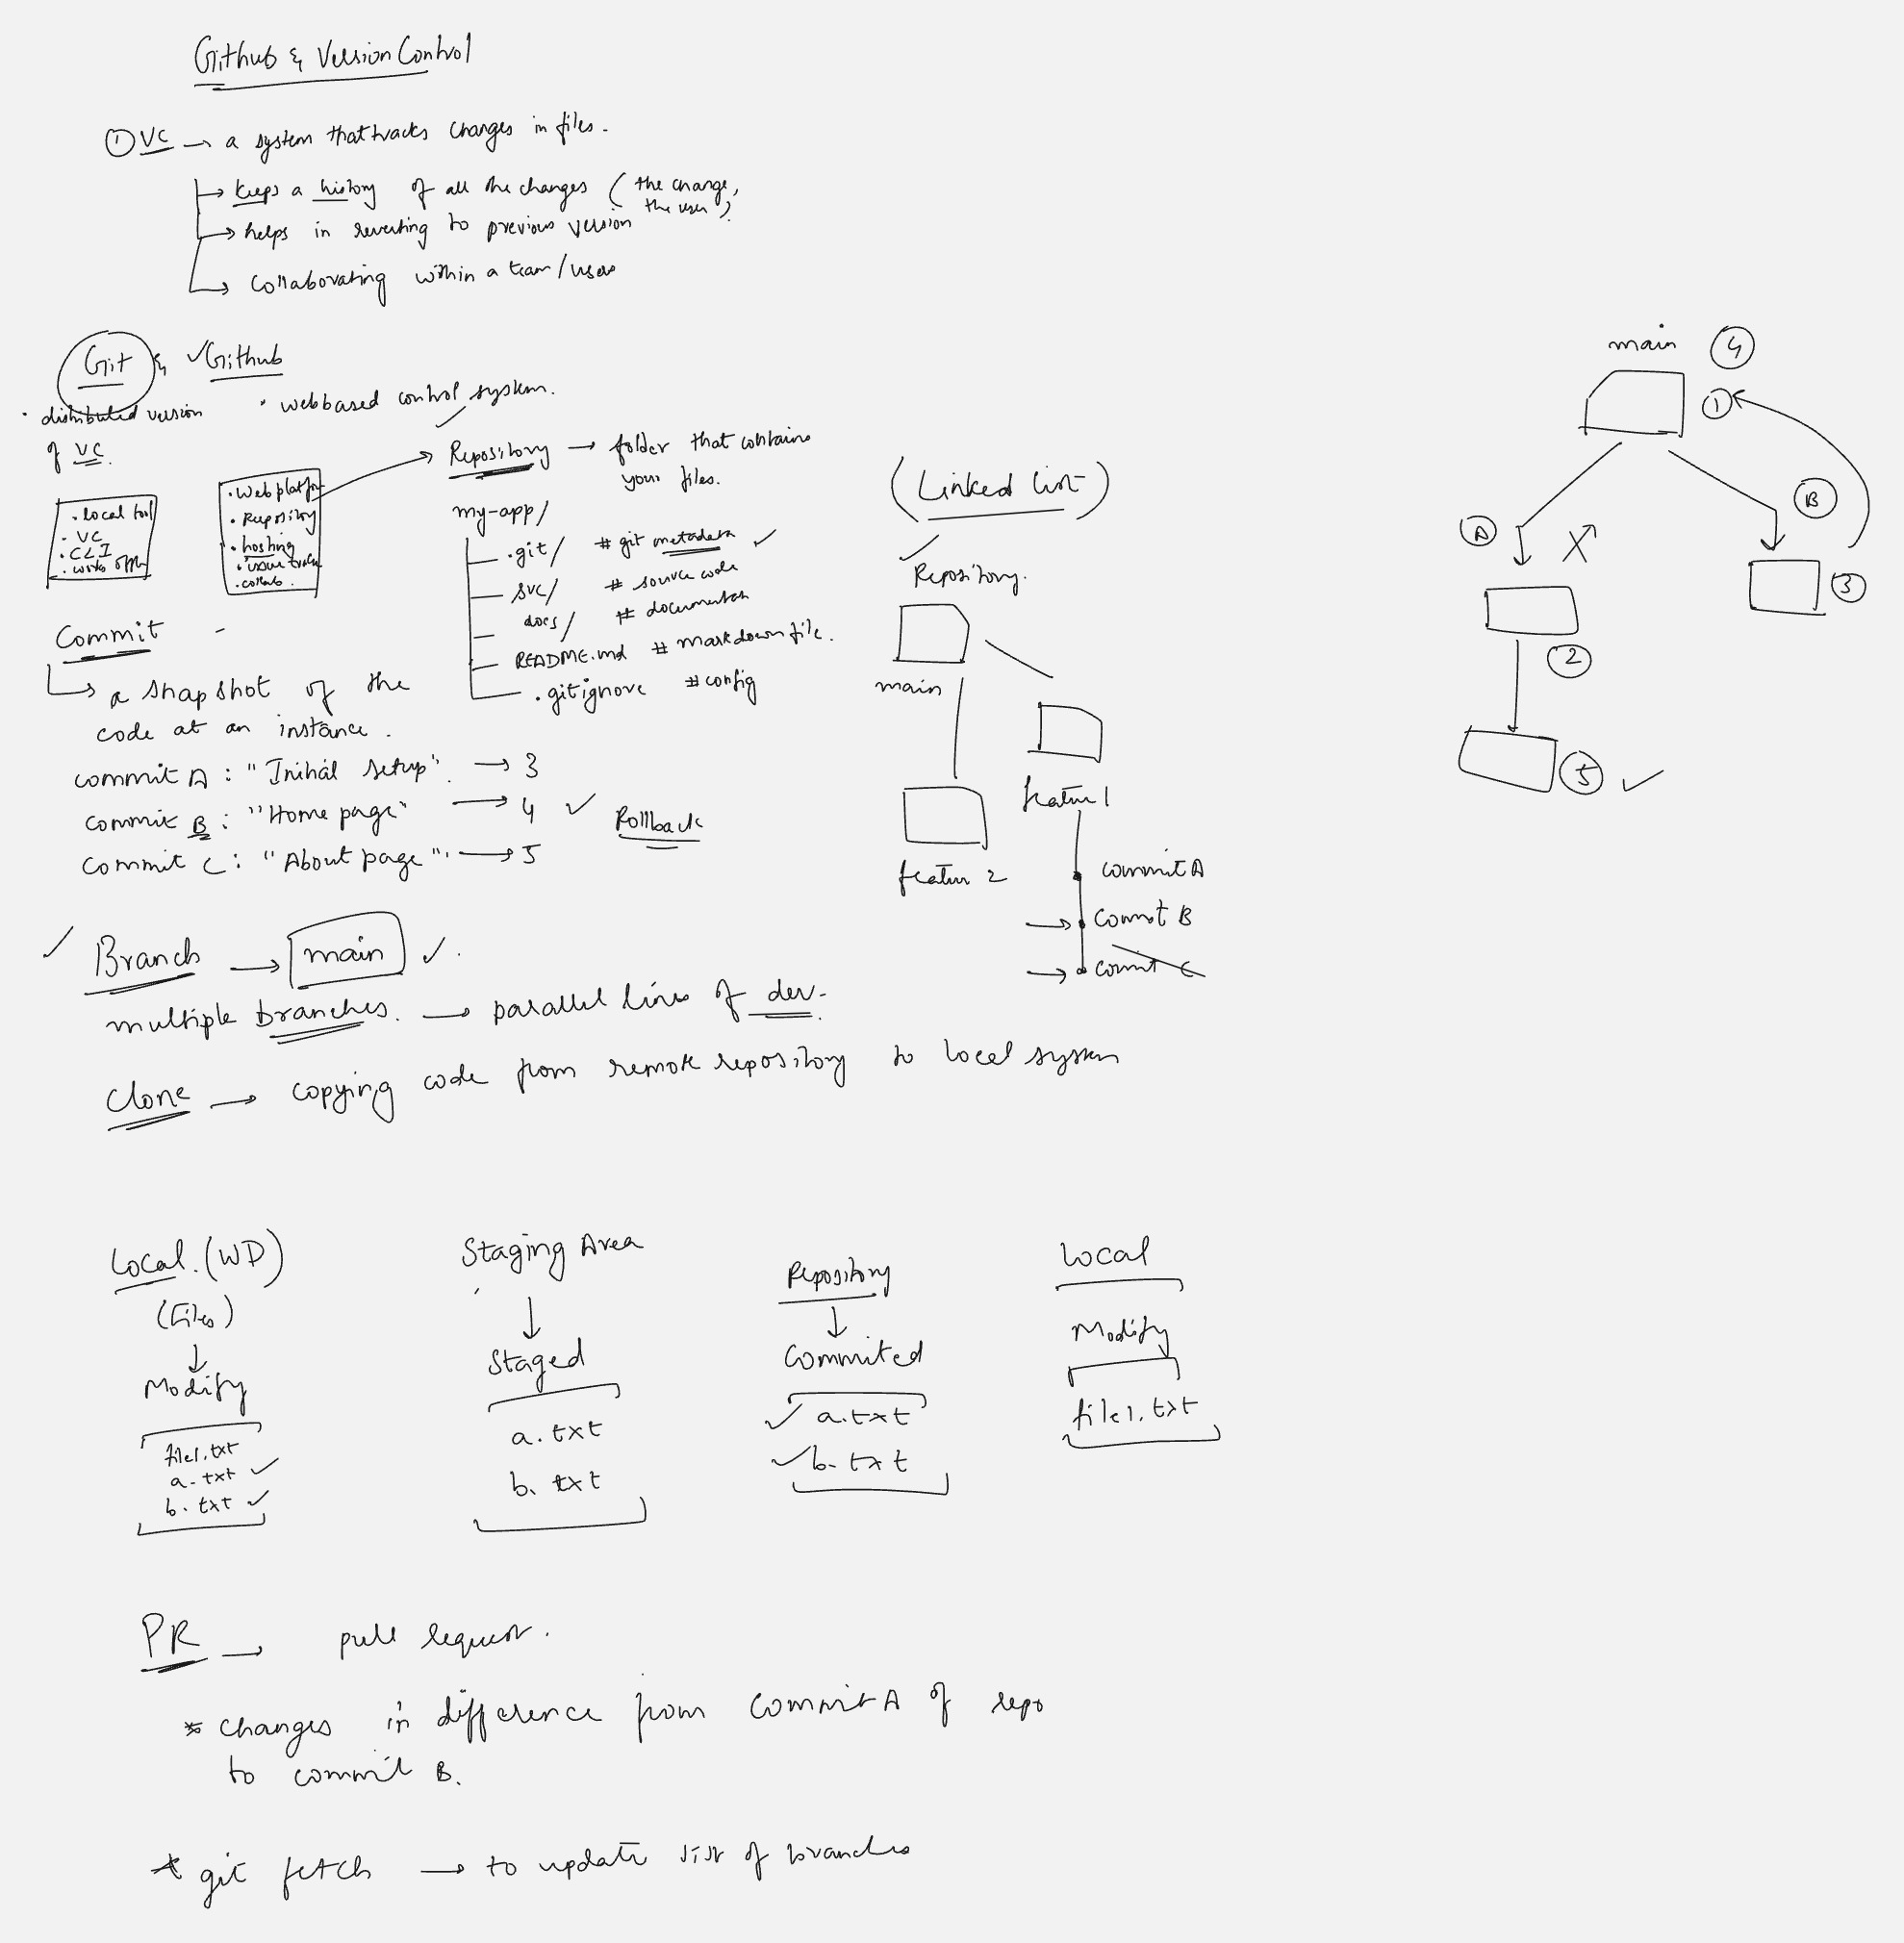 Github & Version Control
① VC → a system that tracks changes in files.
→ keeps a history of all the changes (the change,
the user)
→ helps in reverting to previous version
→ Collaborating within a team/users
Git & ✓Github
• distributed version
of VC.
• web based control system.
• local tool
• VC
• CLI
• works offl
• Web platfor
• Repository
• hosting
• issue track
• collab.
Repository → folder that contains
your files.
my-app/
.git/ # git metadata ✓
src/ # source code
docs/ # documentation
README.md # markdown file.
.gitignore # config
Commit -
→ a snapshot of the
code at an instance.
commit A : "Initial setup". → 3
commit B : "Home page" → 4 ✓
commit C : "About page". → 5
Rollback
(Linked List)
✓
Repository.
main
feature 1
feature 2
commit A
→ commit B
→ commit C
main ④
①
Ⓐ X Ⓑ
③
②
⑤ ✓
✓ Branch → main ✓.
multiple branches. → parallel lines of dev.
Clone → copying code from remote repository to local system
Local. (WD)
(Files)
↓
Modify
file1.txt
a.txt ✓
b.txt ✓
Staging Area
↓
Staged
a.txt
b.txt
Repository
↓
Commited
✓ a.txt
✓ b.txt
Local
Modify
file1.txt
PR → pull request.
* changes in difference from commit A of repo
to commit B.
* git fetch → to update list of branches